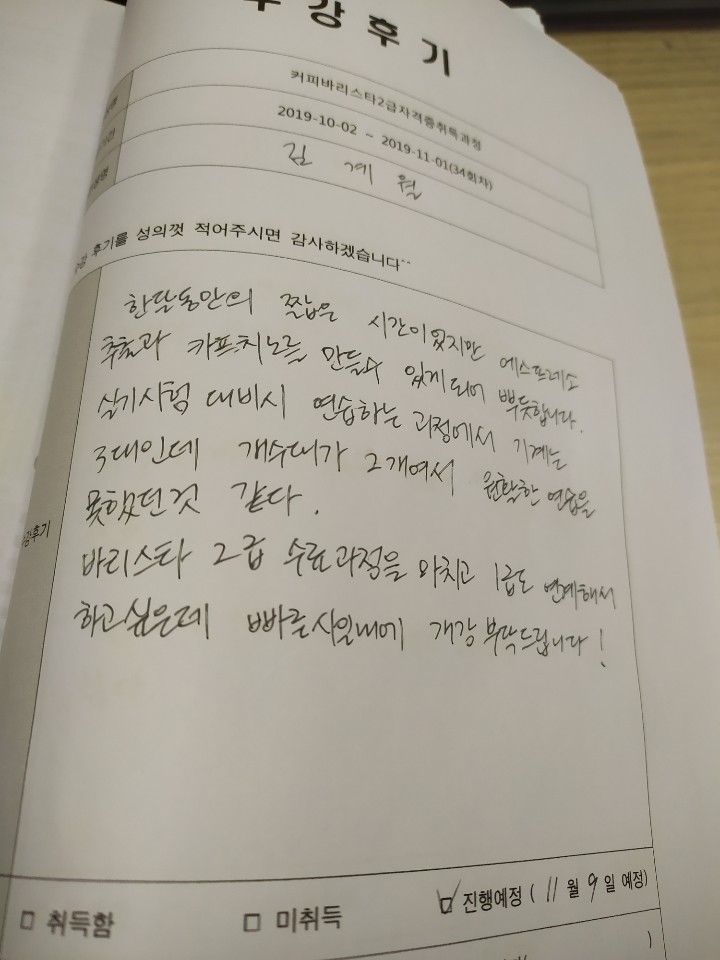 수강후기
커피바리스타2급자격증취득과정
2019-10-02 ~ 2019-11-01(34회차)
김 계 월
후기를 성의껏 적어주시면 감사하겠습니다^^
한달동안의 짧은 시간이었지만 에스프레소
추출과 카프치노를 만들수 있게 되어 뿌듯합니다.
실기시험 대비시 연습하는 과정에서 기계는
3대인데 개수대가 2개여서 원활한 연습을
못했던것 같다.
바리스타 2급 수료과정을 마치고 1급도 연계해서
하고싶은데 빠른시일내에 개강 부탁드립니다!
수강후기
□ 취득함 □ 미취득 ☑ 진행예정 ( 11 월 9 일 예정)
)